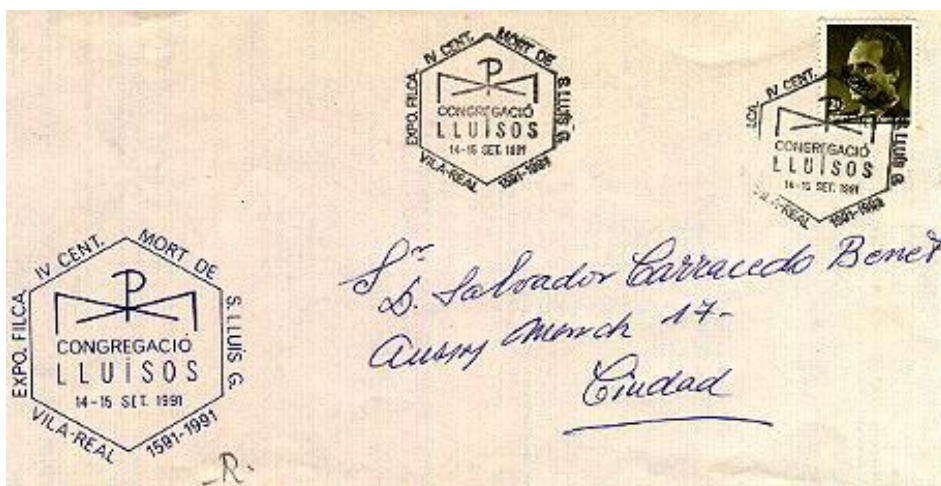 EXPO. FILCA. IV CENT. MORT DE S. LLUÍS G.
CONGREGACIÓ
LLUÏSOS
14-15 SET. 1991
VILA-REAL 1591-1991
IV CENT.
S. LLUÍS G.
CONGREGACIÓ
LLUÏSOS
14-15 SET. 1991
VILA-REAL 1591-1991
EXPO. FILCA. IV CENT. MORT DE S. LLUÍS G.
CONGREGACIÓ
LLUÏSOS
14-15 SET. 1991
VILA-REAL 1591-1991
Sr
D. Salvador Carracedo Benet
March 17-
Ciudad
R.